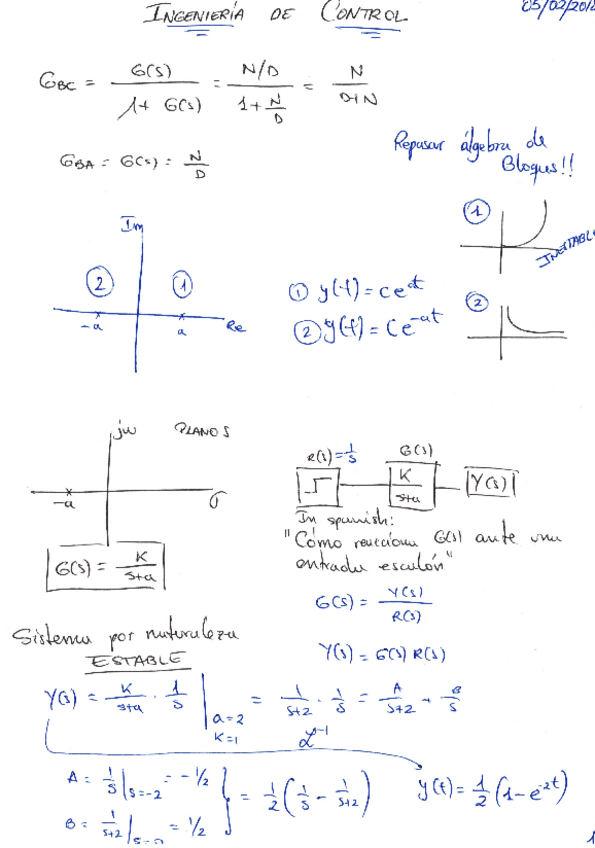 INGENIERÍA DE CONTROL
05/02/201
G_BC = G(s) / (1 + G(s)) = (N/D) / (1 + N/D) = N / (D+N)
G_BA = G(s) = N/D
Repasar álgebra de
Bloques!!
Im
② ①
-a a Re
① y(t) = c e^at
② y(t) = C e^-at
①
INESTABLE
②
jω PLANO S
-a σ
G(s) = K/(s+a)
R(s) = 1/s G(s)
K/(s+a) Y(s)
In spanish:
"Cómo reacciona G(s) ante una
entrada escalón"
G(s) = Y(s)/R(s)
Y(s) = G(s) R(s)
Sistema por naturaleza
ESTABLE
Y(s) = K/(s+a) · 1/s | a=2 K=1 = 1/(s+2) · 1/s = A/(s+2) + B/s
ℒ^-1
A = 1/s | s=-2 = -1/2
B = 1/(s+2) | s=0 = 1/2
} = 1/2 (1/s - 1/(s+2))
y(t) = 1/2 (1 - e^-2t)
1